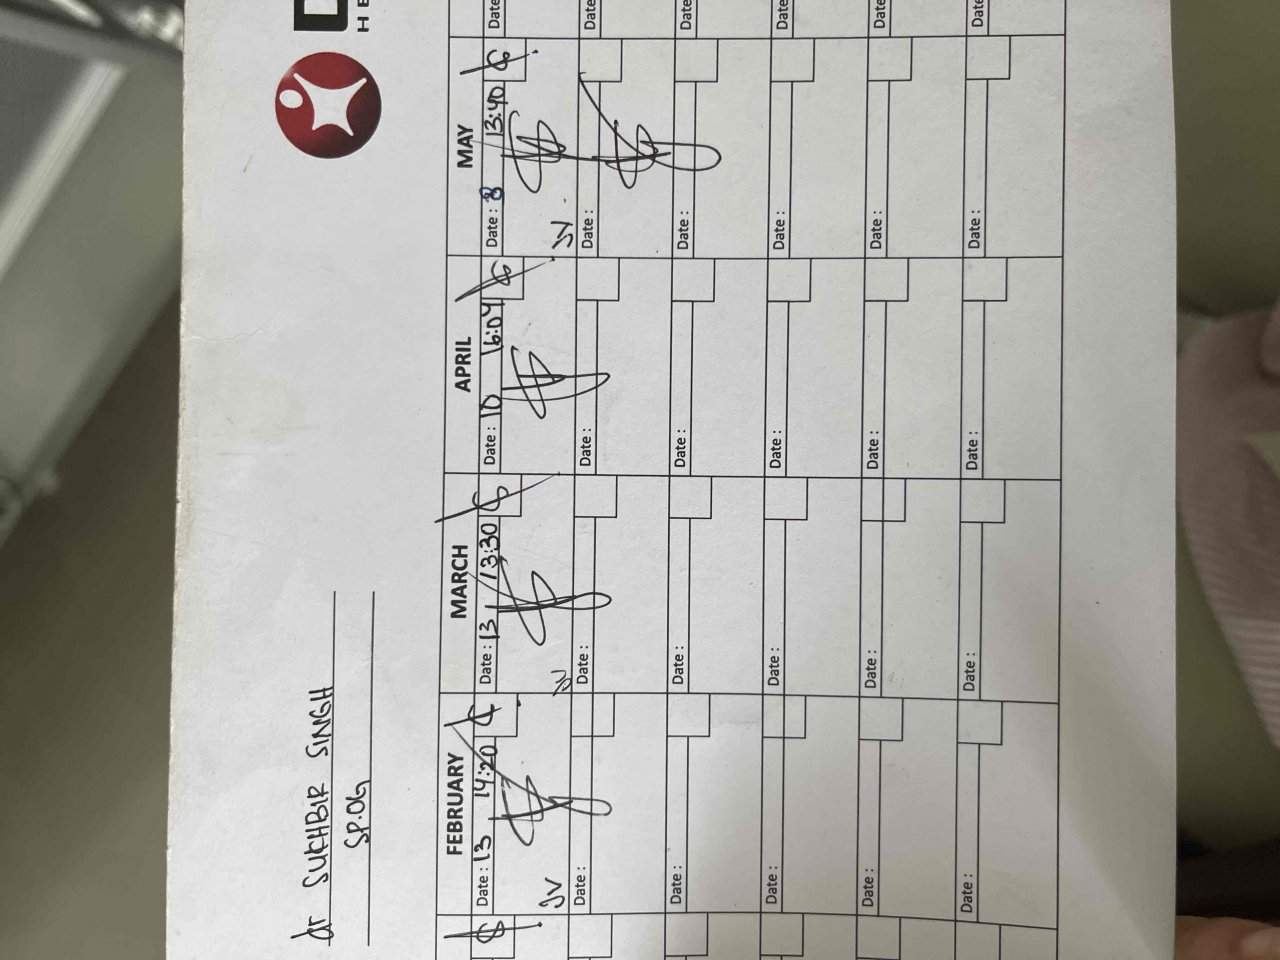 dr SUKHBIR SINGH
SP.OG
D
HE
FEBRUARY MARCH APRIL MAY
Date : 13 14:20 Date : 13 13:30 Date : 10 16:04 Date : 8 13:40 Date
JV JV JV
Date : Date : Date : Date : Date
Date : Date : Date : Date : Date
Date : Date : Date : Date : Date
Date : Date : Date : Date : Date
Date : Date : Date : Date : Date